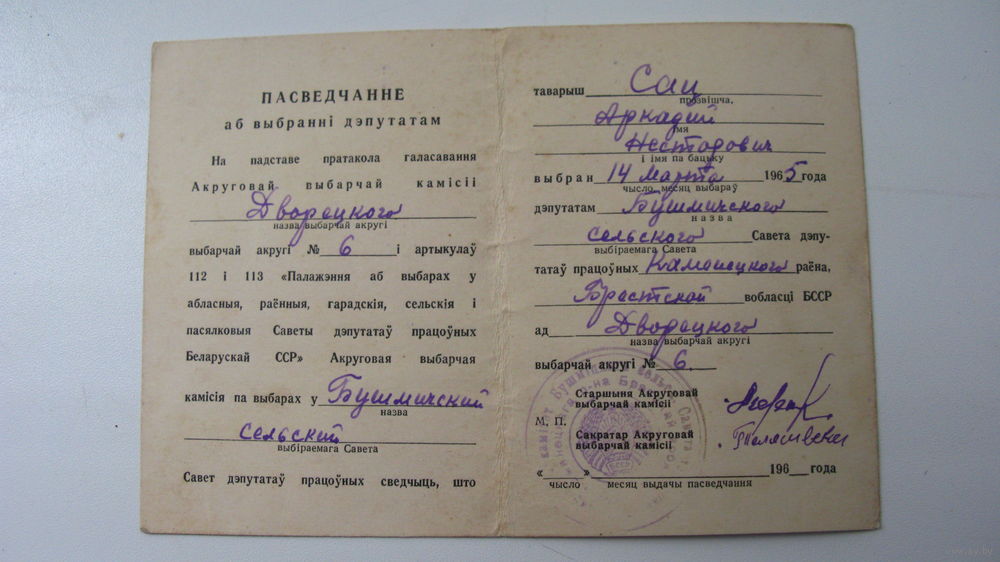 ПАСВЕДЧАННЕ
аб выбранні дэпутатам
На падставе пратакола галасавання
Акруговай выбарчай камісіі
Дворецкого
назва выбарчай акругі
выбарчай акругі № 6 і артыкулаў
112 і 113 «Палажэння аб выбарах у
абласныя, раённыя, гарадскія, сельскія і
пасялковыя Саветы дэпутатаў працоўных
Беларускай ССР» Акруговая выбарчая
камісія па выбарах у Бушмичский
назва
сельский
выбіраемага Савета
Савет дэпутатаў працоўных сведчыць, што
таварыш Сац
прозвішча,
Аркадий
імя
Несторович
і імя па бацьку
выбран 14 марта 1965 года
чысло, месяц выбараў
дэпутатам Бушмичского
назва
сельского Савета дэпу-
выбіраемага Савета
татаў працоўных Каменецкого раёна,
Брестской вобласці БССР
ад Дворецкого
назва выбарчай акругі
выбарчай акругі № 6.
Старшыня Акруговай
выбарчай камісіі
М. П.
Сакратар Акруговай
выбарчай камісіі
« » 196 года
чысло месяц выдачы пасведчання
www.av.by